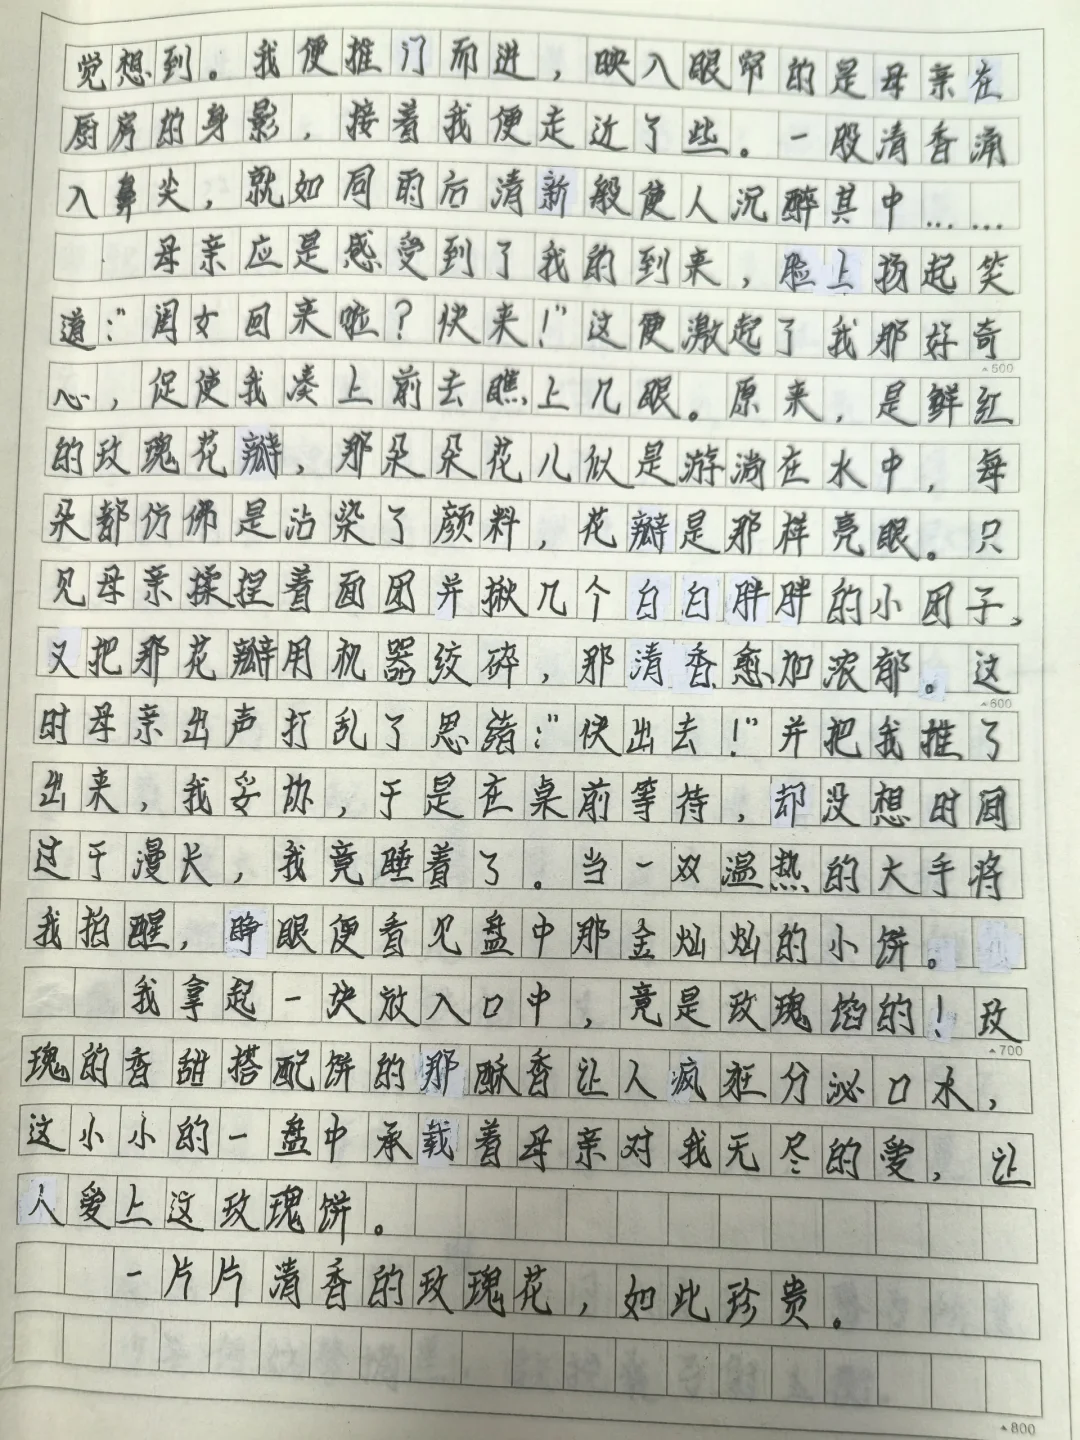 觉想到。我便推门而进，映入眼帘的是母亲在
厨房的身影，接着我便走近了些。一股清香涌
入鼻尖，就如同雨后清新般使人沉醉其中……
母亲应是感受到了我的到来，脸上扬起笑
道："闺女回来啦？快来！"这便激起了我那好奇
500
心，促使我凑上前去瞧上几眼。原来，是鲜红
的玫瑰花瓣，那朵朵花儿似是游淌在水中，每
朵都仿佛是沾染了颜料，花瓣是那样亮眼。只
见母亲揉捏着面团并揪几个白白胖胖的小团子，
又把那花瓣用机器绞碎，那清香愈加浓郁。这
600
时母亲出声打乱了思绪："快出去！"并把我推了
出来，我妥协，于是在桌前等待，却没想时间
过于漫长，我竟睡着了。当一双温热的大手将
我拍醒，睁眼便看见盘中那金灿灿的小饼。
我拿起一块放入口中，竟是玫瑰馅的！玫
700
瑰的香甜搭配饼的那酥香让人疯狂分泌口水，
这小小的一盘中承载着母亲对我无尽的爱，让
人爱上这玫瑰饼。
一片片清香的玫瑰花，如此珍贵。
800